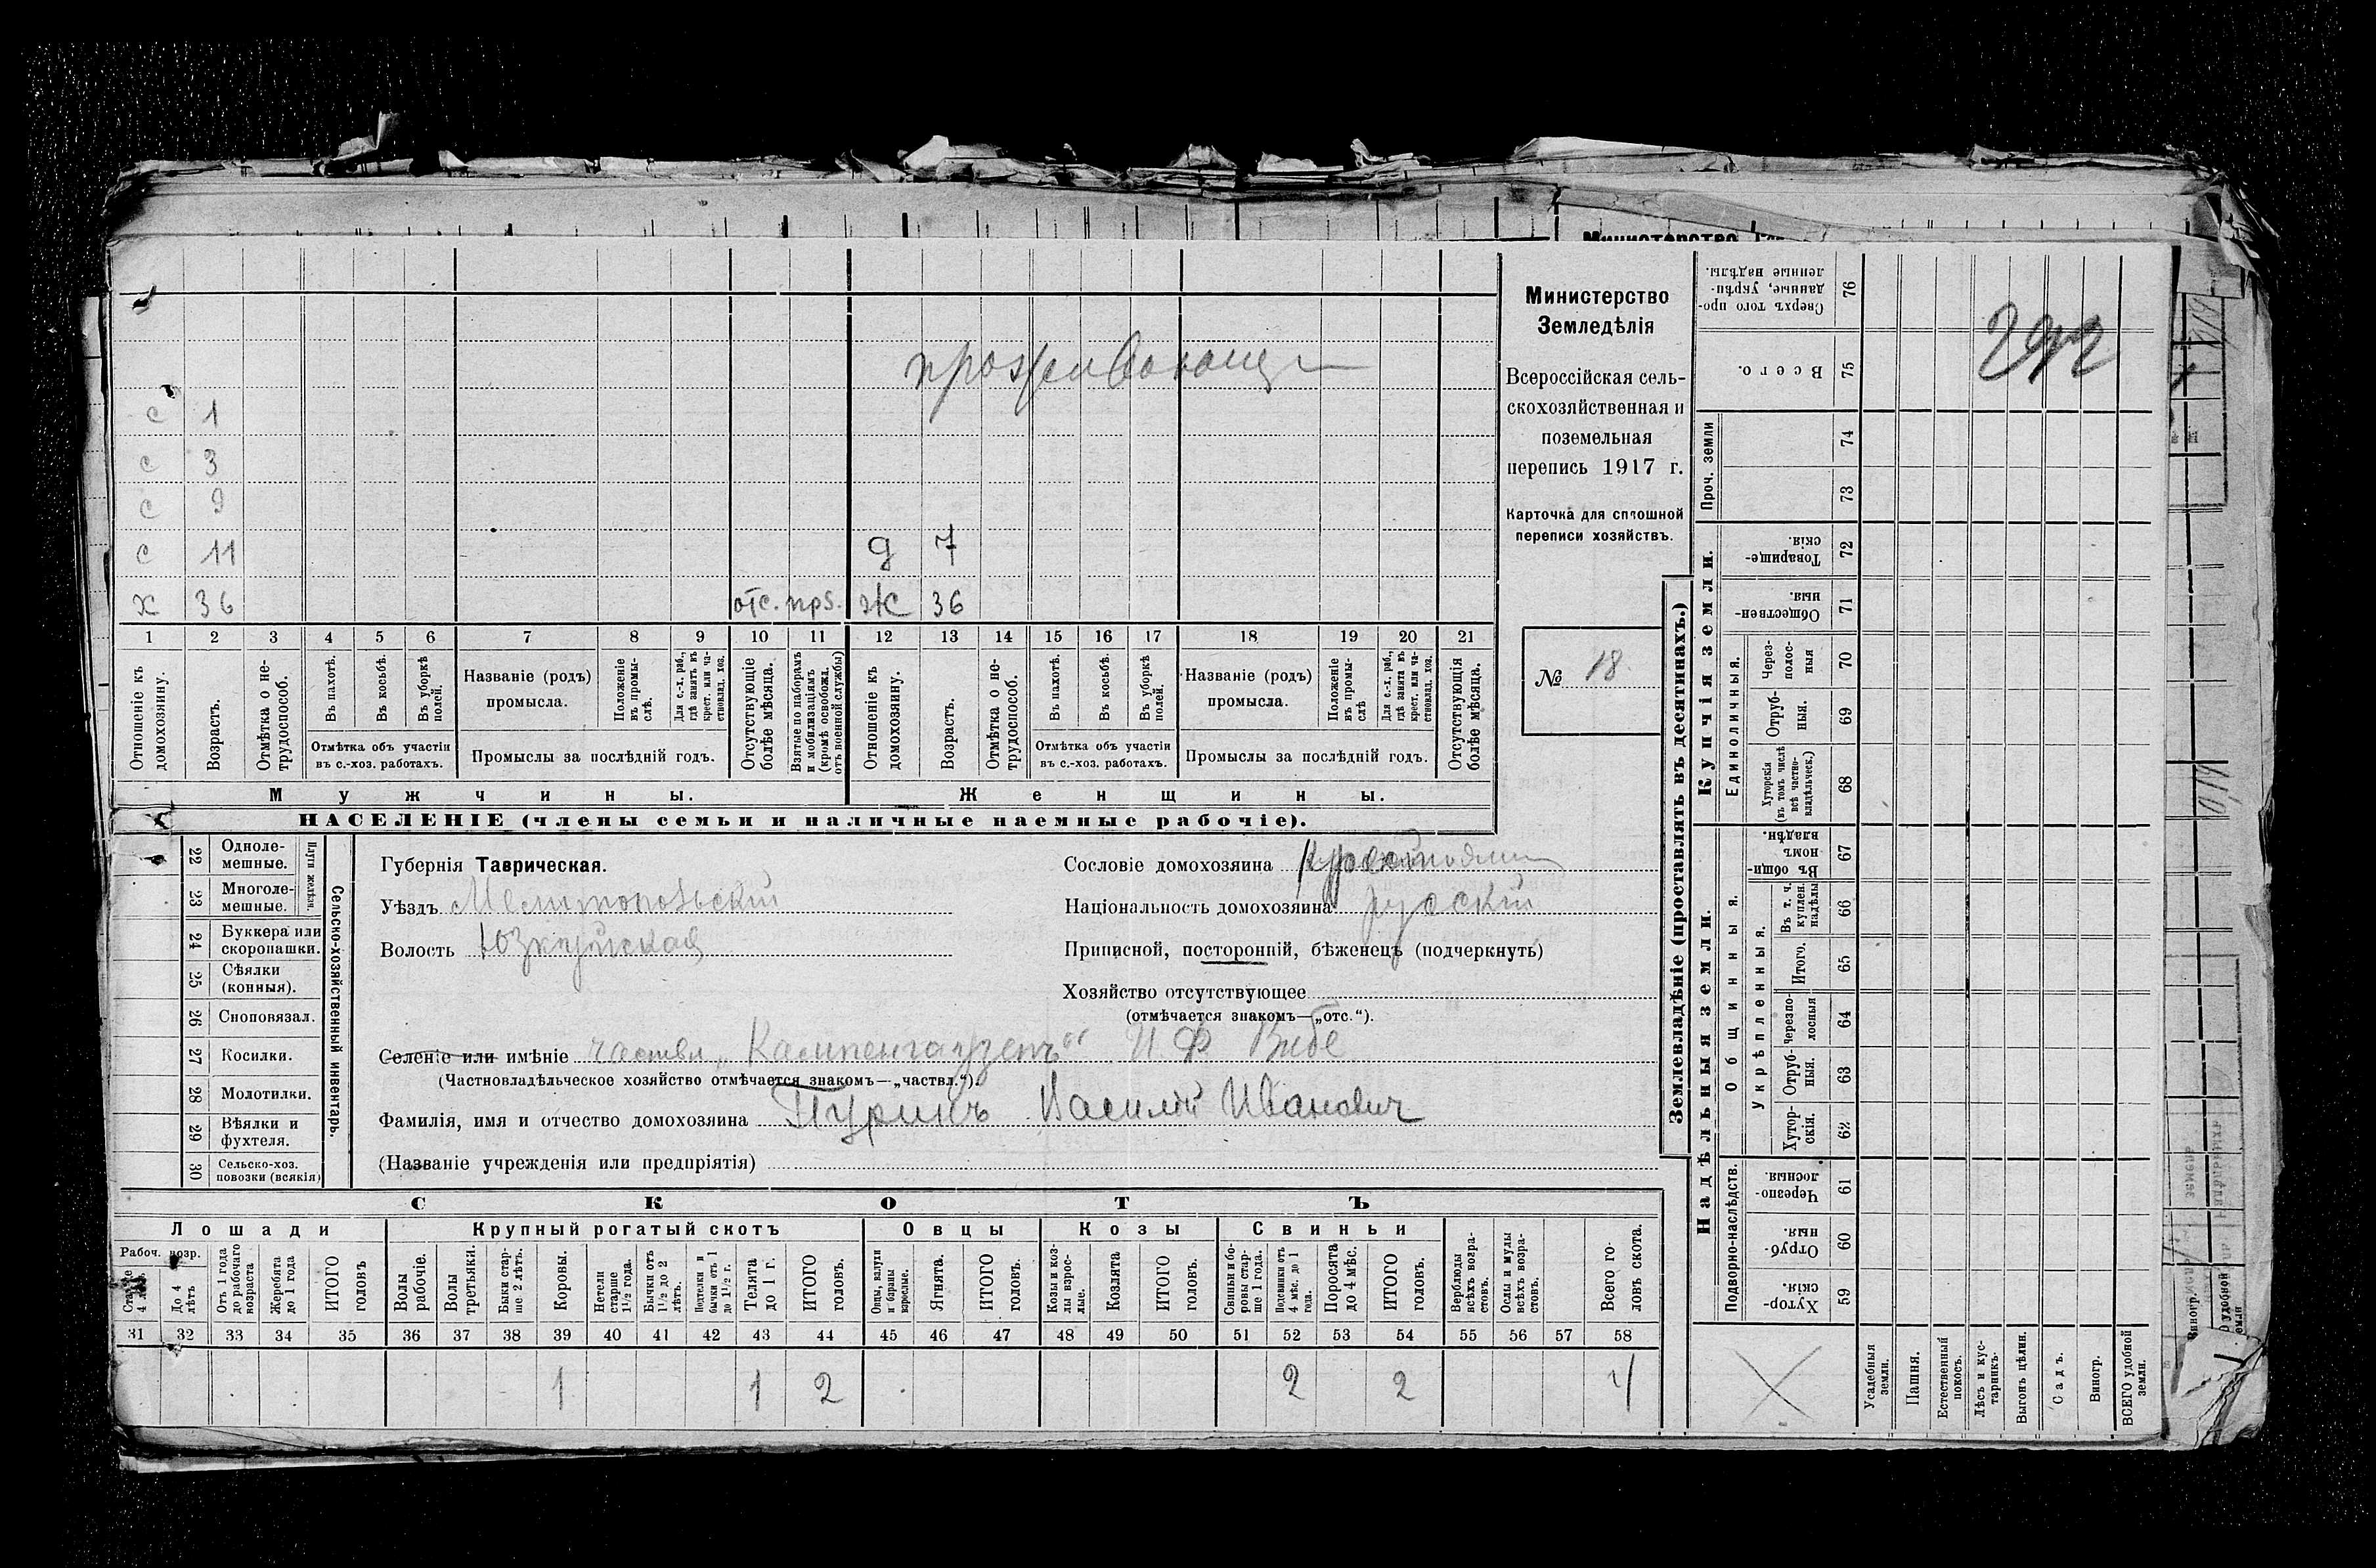 Министерство
проживающ
292
с 1
с 3
с 9
с 11 д 7
х 36 отс. прз. ж 36
1 2 3 4 5 6 7 8 9 10 11 12 13 14 15 16 17 18 19 20 21
Отношеніе къ домохозяину.
Возрастъ.
Отмѣтка о нетрудоспособ.
Въ пахотѣ.
Въ косьбѣ.
Въ уборкѣ полей.
Отмѣтка объ участіи въ с.-хоз. работахъ.
Названіе (родъ) промысла.
Положеніе въ промыслѣ.
Для с.-х. раб., гдѣ занятъ въ крест. или частновлад. хоз.
Промыслы за послѣдній годъ.
Отсутствующіе болѣе мѣсяца.
Взятые по наборамъ и мобилизаціямъ (кромѣ освобожд. отъ военной службы)
Отношеніе къ домохозяину.
Возрастъ.
Отмѣтка о нетрудоспособ.
Въ пахотѣ.
Въ косьбѣ.
Въ уборкѣ полей.
Отмѣтка объ участіи въ с.-хоз. работахъ.
Названіе (родъ) промысла.
Положеніе въ промыслѣ
Для с.-х. раб., гдѣ занята въ крест. или частновлад. хоз.
Промыслы за послѣдній годъ.
Отсутствующія болѣе мѣсяца.
Мужчины. Женщины.
НАСЕЛЕНІЕ (члены семьи и наличные наемные рабочіе).
Министерство
Земледѣлія
Всероссійская сель-
скохозяйственная и
поземельная
перепись 1917 г.
Карточка для сплошной
переписи хозяйствъ.
№ 18
22 Одноле-мешные.
23 Многоле-мешные.
Плуги желѣзн.
24 Буккера или скоропашки.
25 Сѣялки (конныя).
26 Сноповязал.
27 Косилки.
28 Молотилки.
29 Вѣялки и фухтеля.
30 Сельско-хоз. повозки (всякія)
Сельско-хозяйственный инвентарь.
Губернія Таврическая.
Уѣздъ Мелитопольскій
Волость Юзкуйская
Сословіе домохозяина
Національность домохозяина русскій
Приписной, посторонній, бѣженецъ (подчеркнуть)
Хозяйство отсутствующее
(отмѣчается знакомъ—„отс.“).
Селеніе или имѣніе частвл „Кампенгаузенъ“ И Ф Вибе
(Частновладѣльческое хозяйство отмѣчается знакомъ—„частвл.“).
Фамилія, имя и отчество домохозяина Пуринъ Василій Иванович
(Названіе учрежденія или предпріятія)
СКОТЪ
Лошади Крупный рогатый скотъ Овцы Козы Свиньи
Рабоч. возр.
Старше 4 л.
До 4 лѣтъ
Отъ 1 года до рабочаго возраста
Жеребята до 1 года
ИТОГО головъ
Волы рабочіе.
Волы третьяки.
Быки старше 2 лѣтъ.
Коровы.
Нетели старше 1½ года.
Бычки отъ 1½ до 2 лѣтъ.
Подтелки и бычки отъ 1 до 1½ г.
Телята до 1 г.
ИТОГО головъ.
Овцы, валухи и бараны взрослые.
Ягнята.
ИТОГО головъ.
Козы и козлы взрослые.
Козлята
ИТОГО головъ.
Свиньи и боровы старше 1 года.
Подсвинки отъ 4 мѣс. до 1 года.
Поросята до 4 мѣс.
ИТОГО головъ.
Верблюды всѣхъ возрастовъ.
Ослы и мулы всѣхъ возрастовъ.
Всего головъ скота.
31 32 33 34 35 36 37 38 39 40 41 42 43 44 45 46 47 48 49 50 51 52 53 54 55 56 57 58
1 1 2 2 2 4
Землевладѣніе (проставлять въ десятинахъ.)
Купчія земли.
Надѣльныя земли.
Сверхъ того проданные, укрѣпленные надѣлы. 76
Всего. 75
Проч. земли 74
73
Товарищескія. 72
Общественныя. 71
Единоличныя.
Черезполосныя 70
Отрубныя. 69
Хуторскія (въ томъ числѣ всѣ частновладѣльческ.) 68
Общинныя.
Въ общинномъ владѣн. 67
Укрѣпленныя.
Въ т. ч. куплен. надѣлы 66
Итого. 65
Черезполосныя 64
Отрубныя. 63
Хуторскія. 62
Подворно-наслѣдств.
Черезполосныя. 61
Отрубныя. 60
Хуторскія. 59
Усадебныя земли.
Пашня.
Естественный покосъ.
Лѣсъ и кустарникъ.
Выгонъ цѣлин.
Садъ.
Виногр.
ВСЕГО удобной земли.
Виногр.